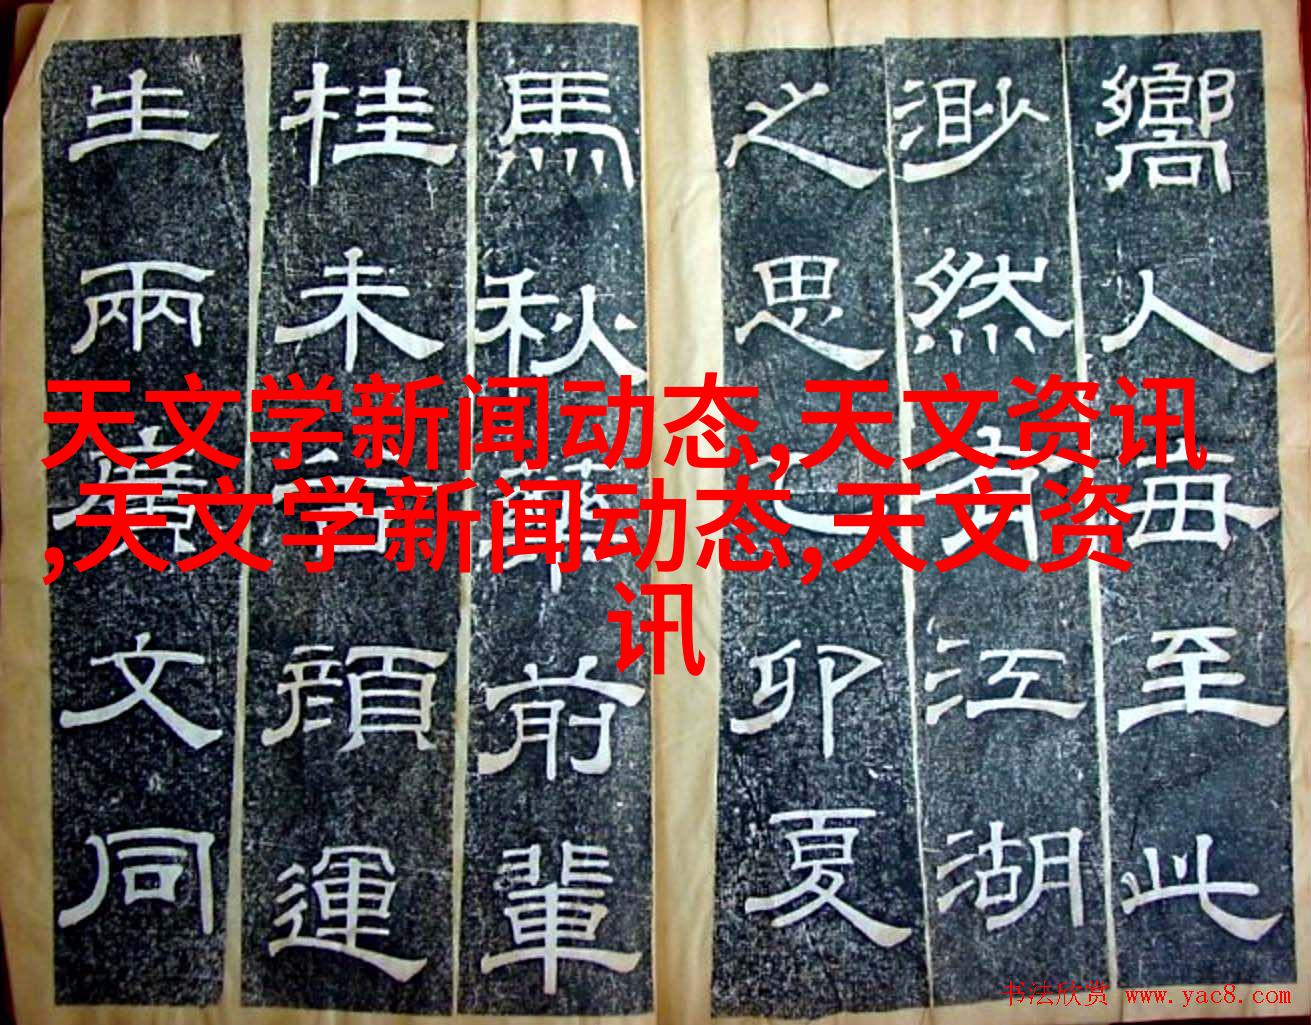 嚮人每至此
渺然有江湖
之思乙卯夏
馬秋前輩
桂未顏運
生兩廣文同
天文学新闻动态,天文资讯
,天文学新闻动态,天文资
讯
书法欣赏 www.yac8.com